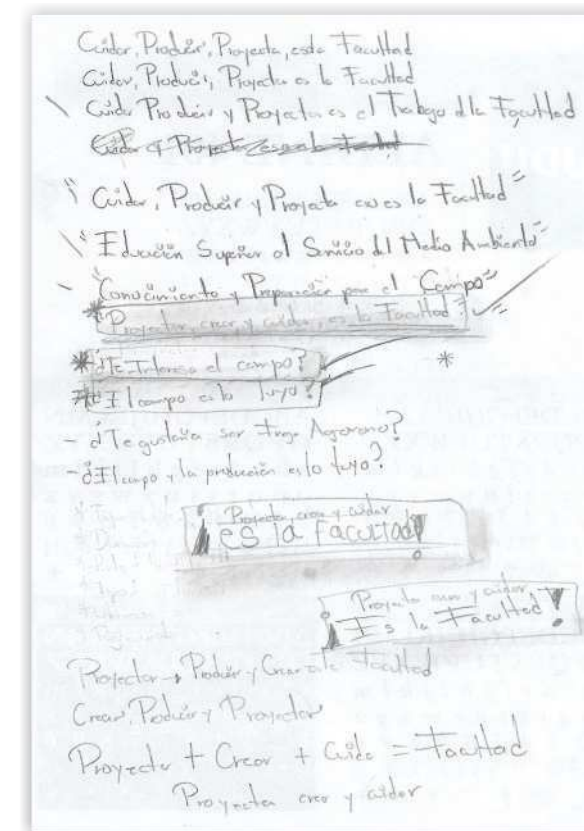 Cuidar, Producir, Proyecta, esta Facultad
Cuidar, Producir, Proyecta es la Facultad
\ Cuida Producir y Proyectar es el Trabajo d la Facultad
Cuidar y Proyectar es la Facultad
\ "Cuidar, Producir y Proyecta es la Facultad"
\ "Educación Superior al Servicio del Medio Ambiente"
- "Conocimiento y Preparación por el Campo"
* Proyectar, crear y cuidar, es la Facultad
* ¿Te Interesa el campo? *
* ¿El campo es lo tuyo?
- ¿Te gustaría ser Agronomo?
- ¿El campo y la producción es lo tuyo?
Proyecta, crea y cuidar
¡es la Facultad!
Proyecta crea y cuidar
¡Es la Facultad!
Proyectar → Producir y Crear es la Facultad
Crear, Producir y Proyectar
Proyecta + Crear + Cuida = Facultad
Proyectar crear y cuidar